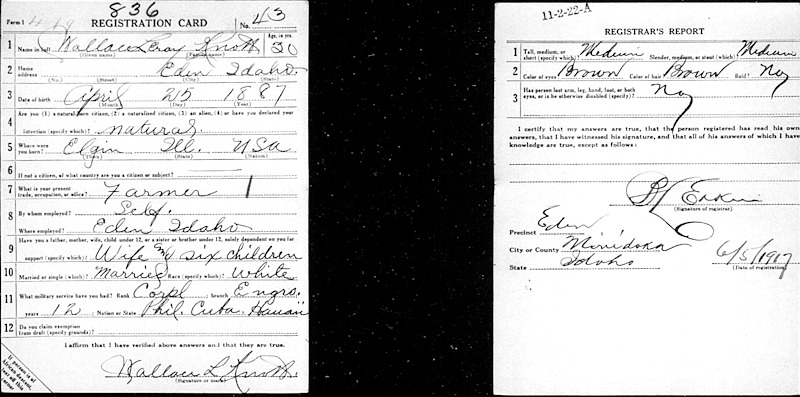 836
Form 1 REGISTRATION CARD No. 43
1 Name in full Wallace Leroy Knott Age, in yrs. 30
(Given name) (Family name)
2 Home address Eden Idaho
(No.) (Street) (City) (State)
3 Date of birth April 25 1887
(Month) (Day) (Year)
4 Are you (1) a natural-born citizen, (2) a naturalized citizen, (3) an alien, (4) or have you declared your
intention (specify which)? natural
5 Where were you born? Elgin Ill. USA
(Town) (State) (Nation)
6 If not a citizen, of what country are you a citizen or subject?
7 What is your present trade, occupation, or office? Farmer 1
8 By whom employed? Self.
Where employed? Eden Idaho
9 Have you a father, mother, wife, child under 12, or a sister or brother under 12, solely dependent on you for
support (specify which)? Wife and six children
10 Married or single (which)? Married Race (specify which)? White
11 What military service have you had? Rank Corpl ; branch Engrs.
years 12 ; Nation or State Phil. Cuba. Hawaii
12 Do you claim exemption from draft (specify grounds)?
I affirm that I have verified above answers and that they are true.
Wallace L Knott.
(Signature or mark)
If person is of
African descent,
tear off this
corner
11-2-22-A
REGISTRAR'S REPORT
1 Tall, medium, or short (specify which)? Medium Slender, medium, or stout (which)? Medium
2 Color of eyes? Brown Color of hair? Brown Bald? No
3 Has person lost arm, leg, hand, foot, or both
eyes, or is he otherwise disabled (specify)? No
I certify that my answers are true, that the person registered has read his own
answers, that I have witnessed his signature, and that all of his answers of which I have
knowledge are true, except as follows:
(Signature of registrar)
Precinct Eden
City or County Minidoka
State Idaho
6/5/1917
(Date of registration)